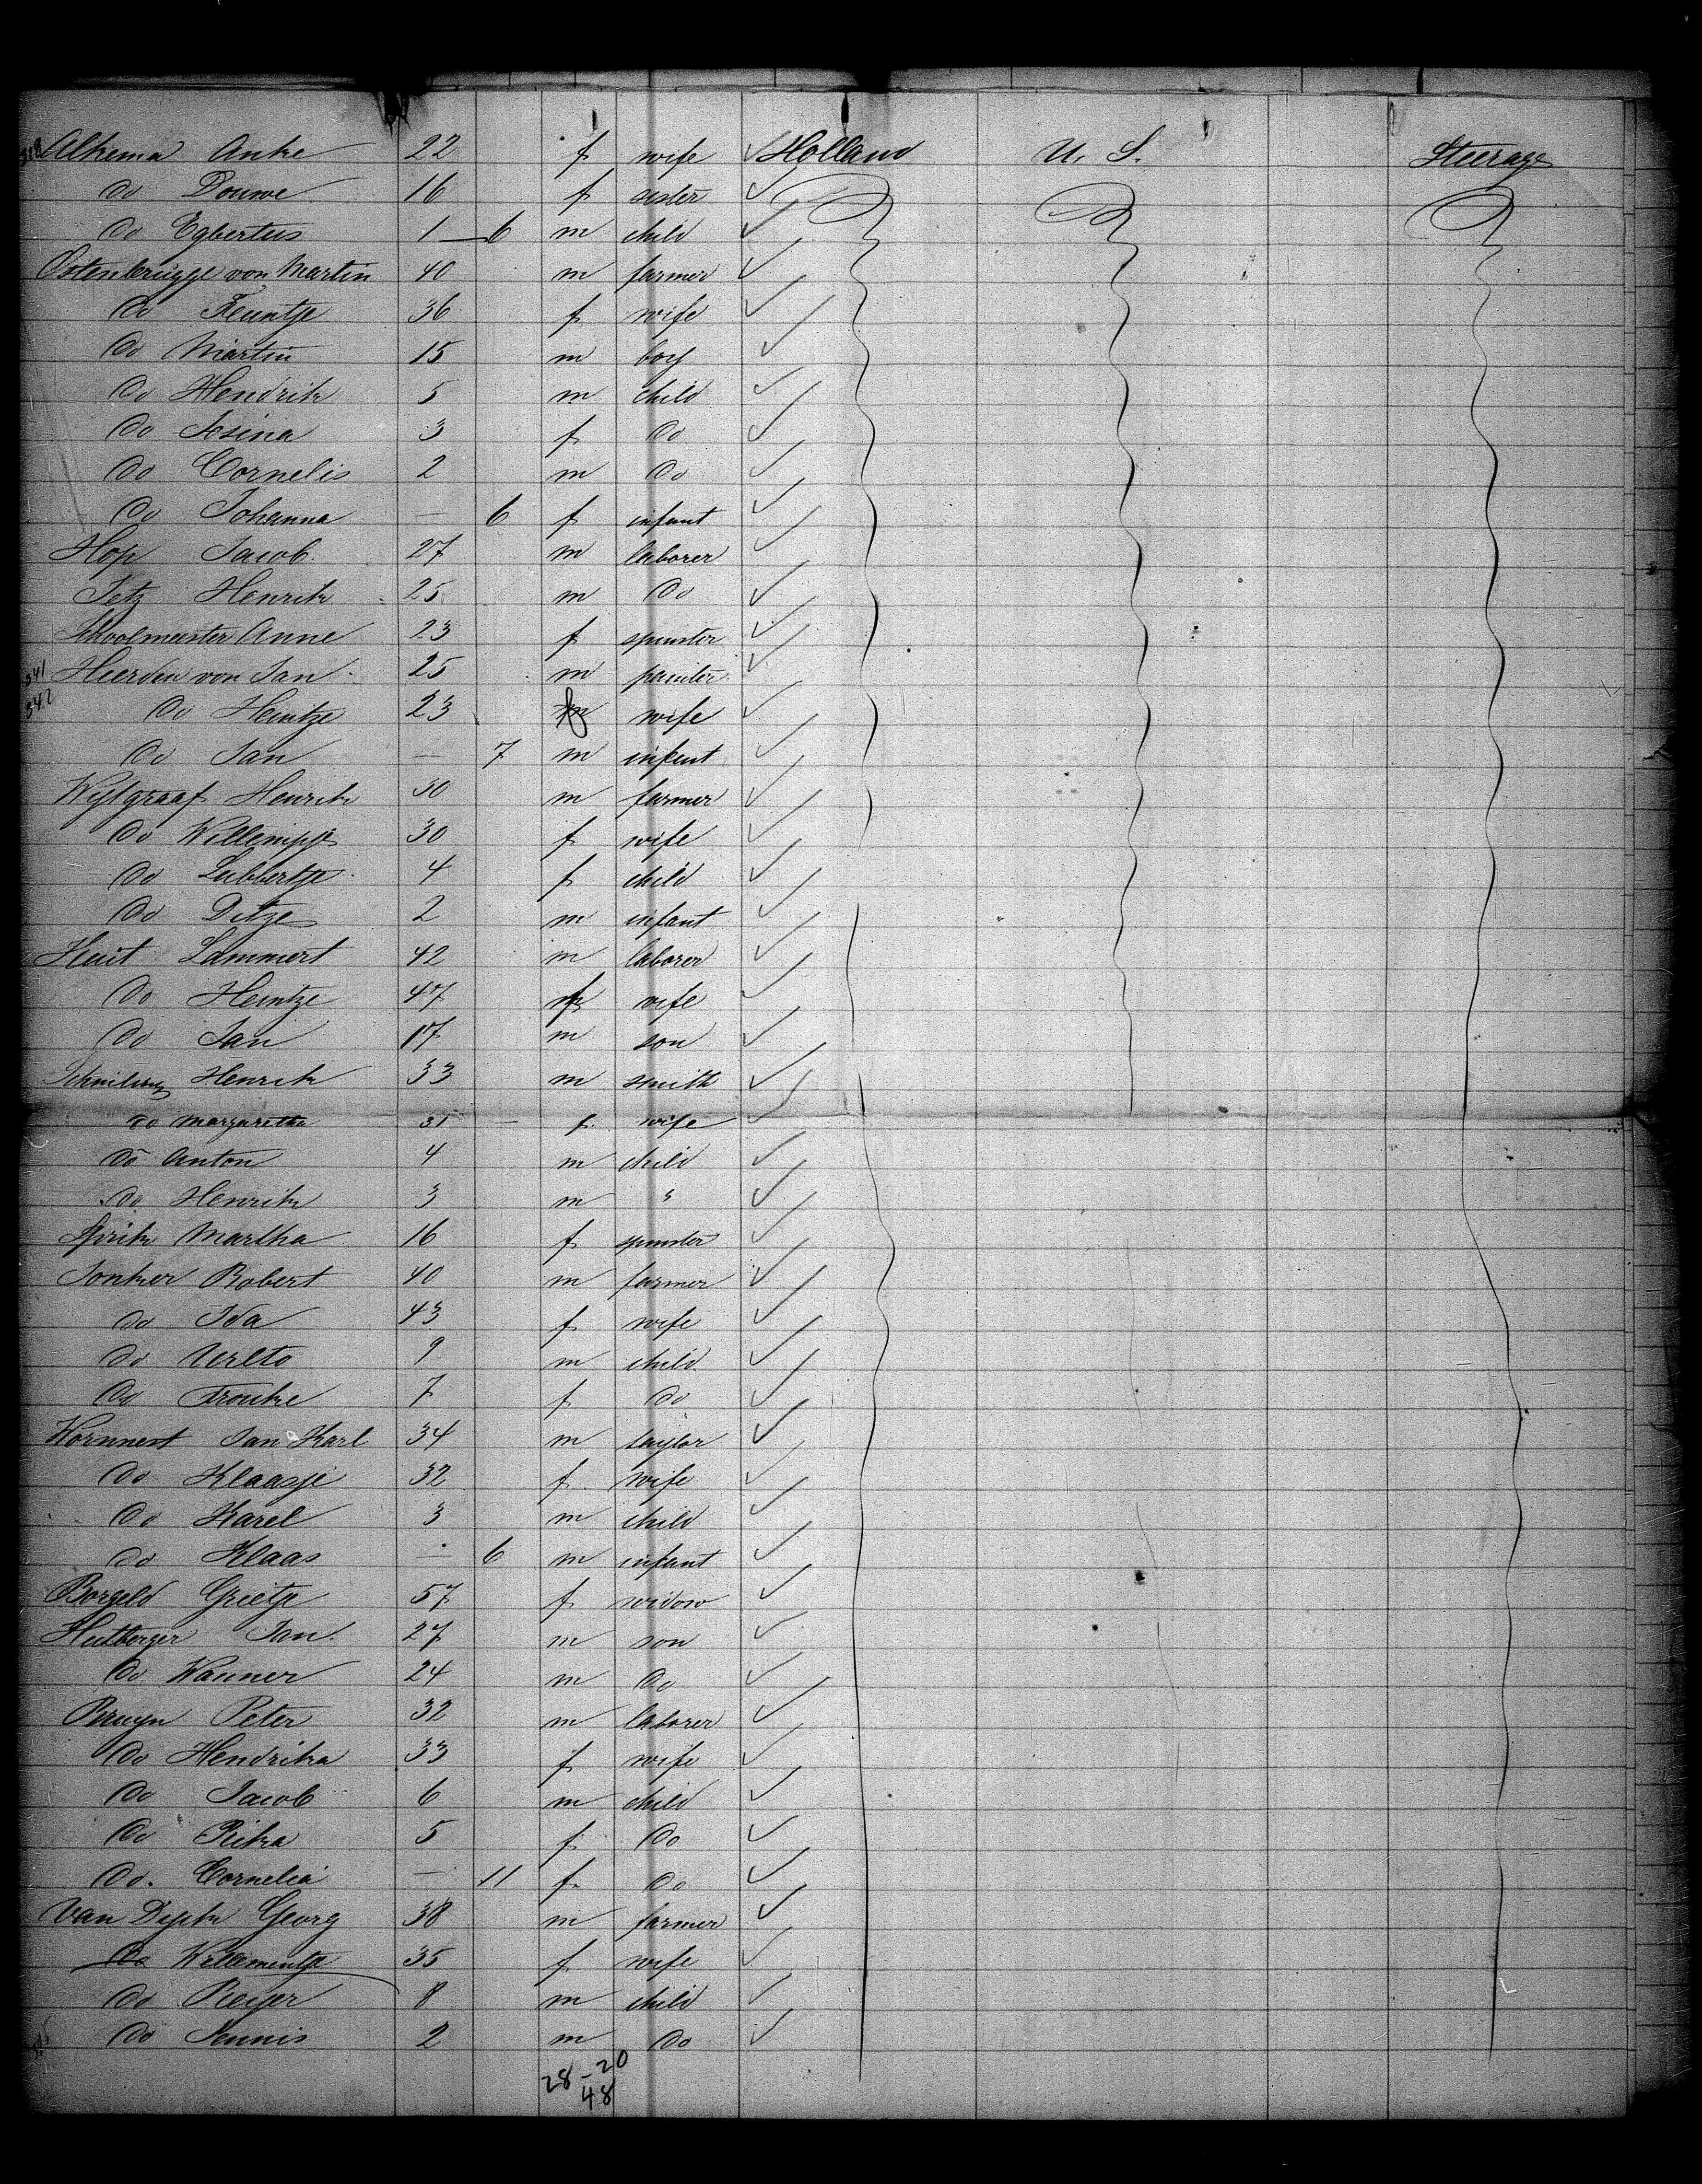 Alkema Anke 22 f wife Holland U. S. Steerage
do Douwe 16 f sister
do Egbertus 1 — 6 m child
Ostenbrugge von Martin 40 m farmer
do Teuntje 36 f wife
do Martin 15 m boy
do Hendrik 5 m child
do Asina 3 f do
do Cornelis 2 m do
do Johanna — 6 f infant
Hop Jacob 27 m laborer
Jetz Henrik 25 m do
Schoolmeester Anne 23 f spinster
341 Heerden von Jan 25 m painter
342 do Heintze 23 f wife
do Jan — 7 m infant
Wijtgraaf Henrik 30 m farmer
do Willempje 30 f wife
do Lubbertje 4 f child
do Ditze 2 m infant
Huit Lammert 42 m laborer
do Heintze 47 f wife
do Jan 17 m son
Henrik 33 m smith
do Margaretha 31 — f wife
do Anton 4 m child
do Henrik 3 m "
Sprik Martha 16 f spinster
Jonker Robert 40 m farmer
do Ida 43 f wife
do Uelto 9 m child
do Frouke 7 f do
Kornnest Jan Karl 34 m taylor
do Klaasje 32 f wife
do Karel 3 m child
do Klaas — 6 m infant
Borgeld Grietje 57 f widow
Hutberger Jan 27 m son
do Wanner 24 m do
Bruyn Peter 32 m laborer
do Hendrika 33 f wife
do Jacob 6 m child
do Rika 5 f do
do. Cornelia — 11 f do
Van Dyck Georg 38 m farmer
do Willementje 35 f wife
do Reijer 8 m child
do Teunis 2 m do
28 - 20
48